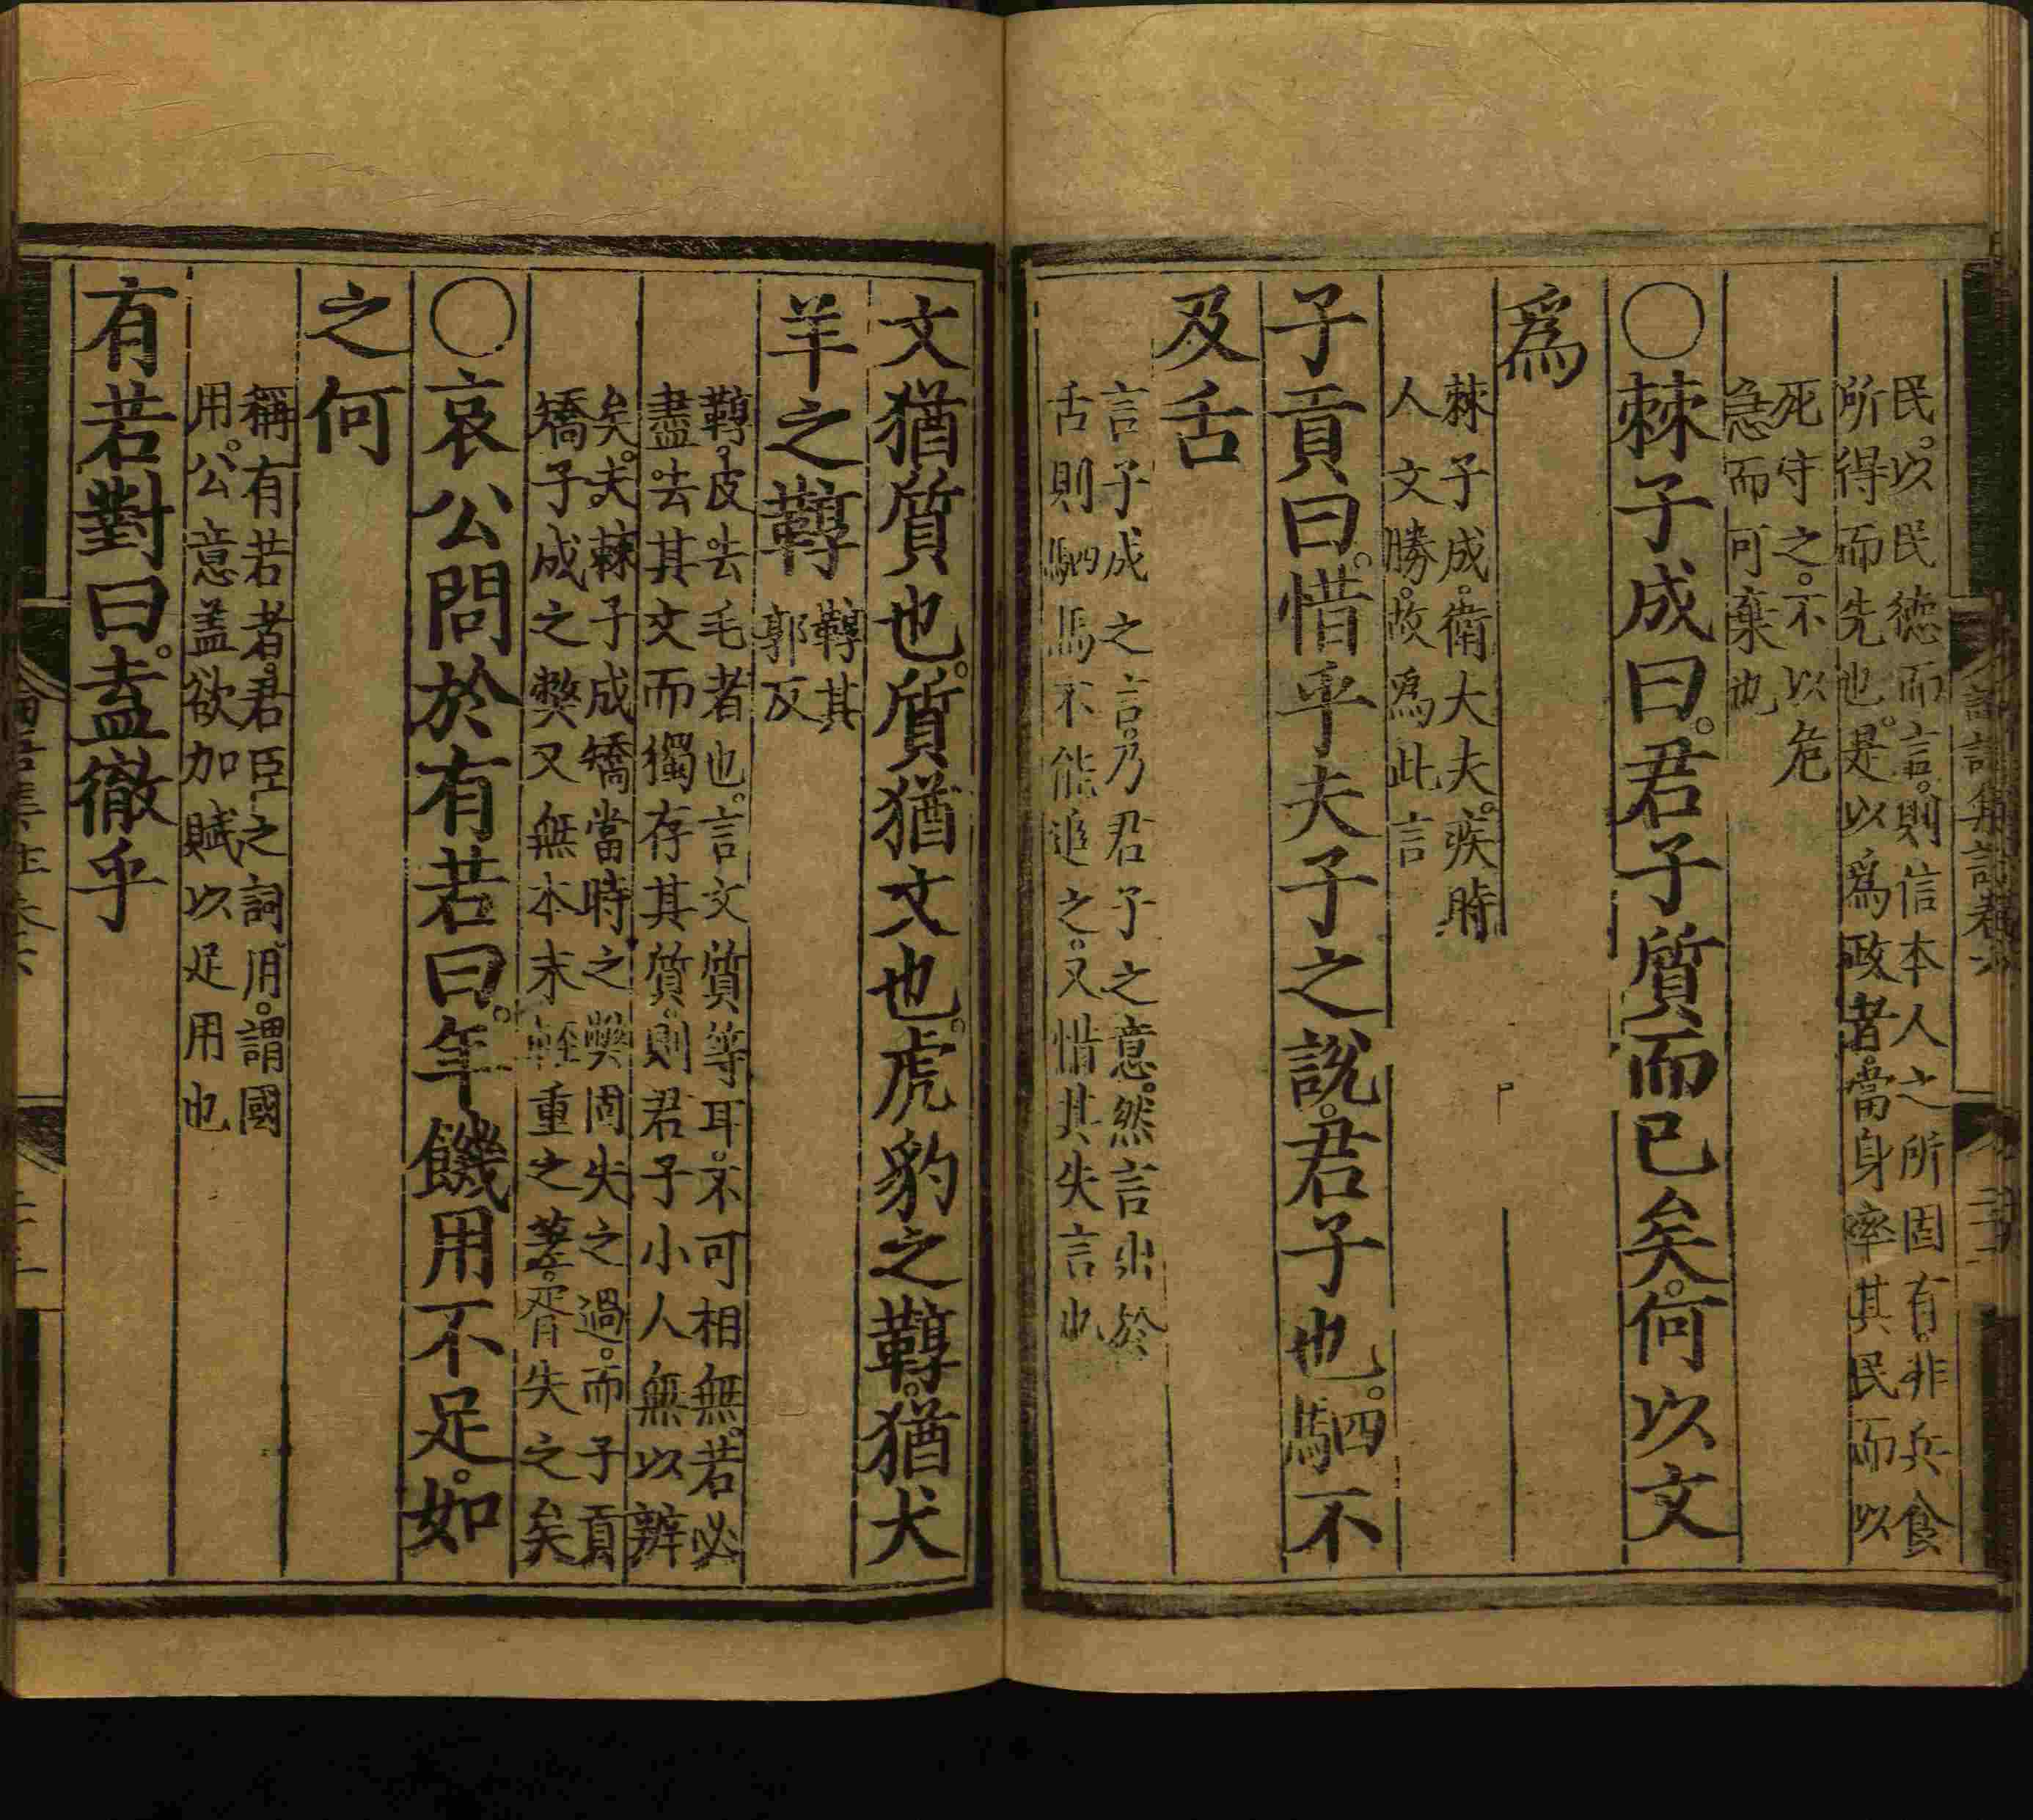 民。以民德而言。則信本人之所固有。非兵食
所得而先也。是以爲政者。當身率其民而以
死守之。不以危
急而可棄也
〇棘子成曰。君子質而已矣。何以文
爲
棘子成。衛大夫。疾時
人文勝。故爲此言
子貢曰。惜乎夫子之說。君子也。駟不
及舌
言子成之言。乃君子之意。然言出於
舌則駟馬不能追之。又惜其失言也
文猶質也。質猶文也。虎豹之鞹。猶犬
羊之鞹
鞹其
郭反
鞹。皮去毛者也。言文質等耳。不可相無。若必
盡去其文而獨存其質。則君子小人無以辨
矣。夫棘子成矯當時之獘固失之過。而子貢
矯子成之獘又無本末輕重之差。胥失之矣
〇哀公問於有若曰。年饑用不足。如
之何
稱有若者。君臣之詞。用。謂國
用。公意盖欲加賦以足用也
有若對曰。盍徹乎